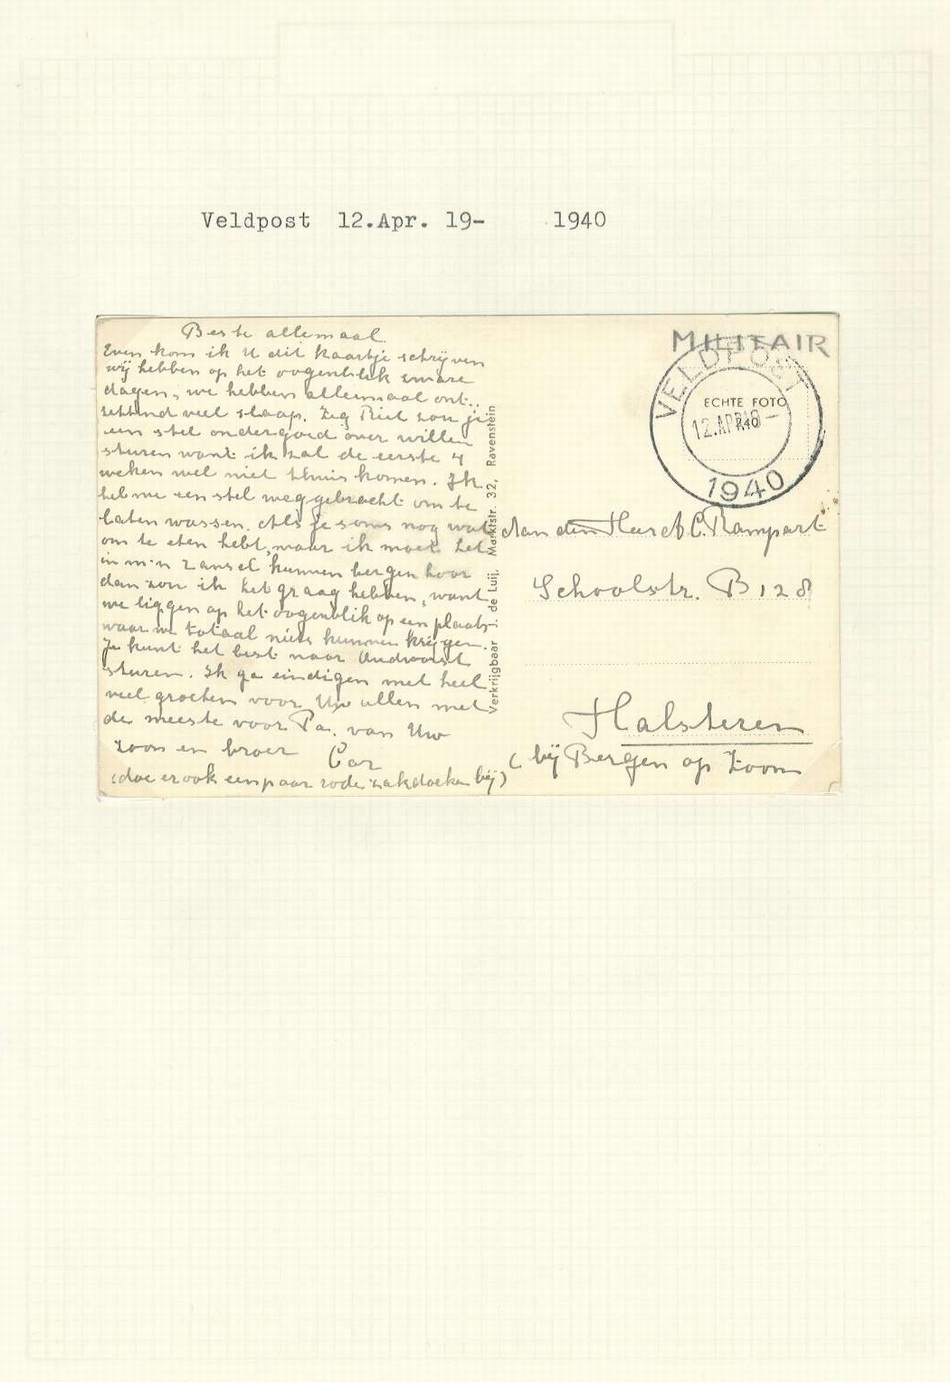 Veldpost 12.Apr. 19- 1940
Beste allemaal
Even kom ik U dit kaartje schrijven
wij hebben op het oogenblik zware
dagen, we hebben allemaal ont-
zettend veel slaap. Zeg Riet zou je
een stel ondergoed over willen
sturen want ik zal de eerste 4
weken wel niet thuis komen. Ik
heb me een stel weggebracht om te
laten wassen. Als je soms nog wat
om te eten hebt, maar ik moet het
in m'n ransel kunnen bergen hoor
dan zou ik het graag hebben, want
we liggen op het oogenblik op een plaats
waar we totaal niets kunnen krijgen.
Je kunt het best naar
sturen. Ik ga eindigen met heel
veel groeten voor Uw allen met
de meeste voor Pa. van Uw
zoon en broer Cor
(doe er ook een paar rode zakdoeken bij)
Verkrijgbaar de Luij, Marktstr. 32, Ravenstein
MILITAIR
VELDPOST
ECHTE FOTO
12.APR
1940
Aan den Heer A.C. Rampart
Schoolstr. B 128
Halsteren
(bij Bergen op Zoom